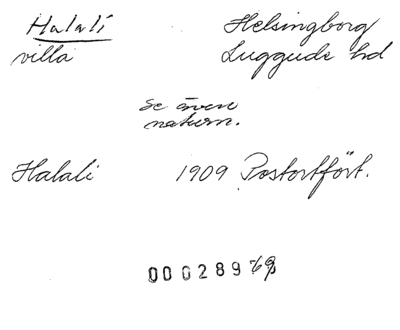 Halali Helsingborg
villa Luggude hd
se även
naturn.
Halali 1909 Postortfört.
00028979